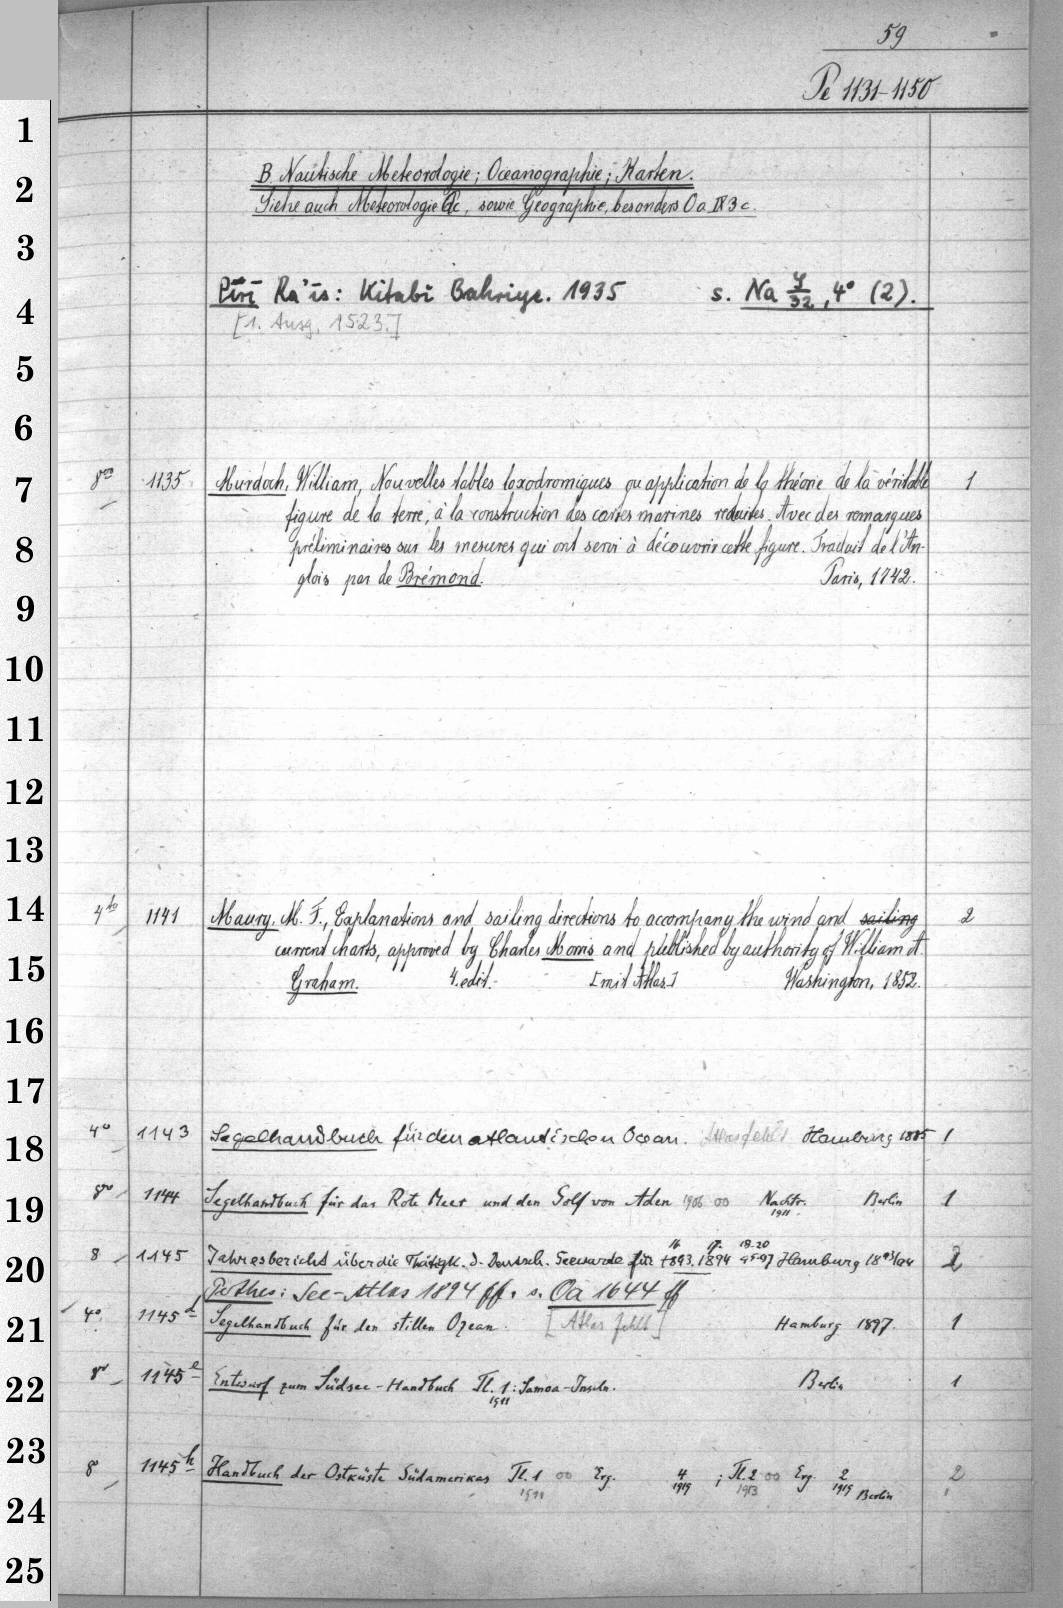 59
Pe 1131-1150
1
2
3
4
5
6
7
8
9
10
11
12
13
14
15
16
17
18
19
20
21
22
23
24
25
B. Nautische Meteorologie; Oceanographie; Karten.
Siehe auch Meteorologie Qc, sowie Geographie, besonders Oa IX 3 c.
Pīrī Ra'īs: Kitabī Bahriye. 1935 s. Na 4/32, 4° (2).
[1. Ausg. 1523.]
8vo 1135 Murdoch, William, Nouvelles tables loxodromiques ou application de la théorie de la véritable 1
figure de la terre, à la construction des cartes marines reduites. Avec des remarques
préliminaires sur les mesures qui ont servi à découvrir cette figure. Traduit de l'An-
glois par de Brémond. Paris, 1742.
4to 1141 Maury, M. F., Explanations and sailing directions to accompany the wind and sailing 2
current charts, approved by Charles Morris and published by authority of William A.
Graham. 4. edit. [mit Atlas.] Washington, 1852.
4° 1143 Segelhandbuch für den atlantischen Ocean. Atlas fehlt Hamburg 1885 1
8vo 1144 Segelhandbuch für das Rote Meer und den Golf von Aden 1906 Nachtr. 1911. Berlin 1
8 1145 Jahresbericht über die Thätigk. d. Deutsch. Seewarte für 16 17. 18-20 1893. 1894 95-97 Hamburg 1893/94 2
Rothes: See-Atlas 1894 ff. s. Oa 1644 ff
4° 1145d Segelhandbuch für den stillen Ozean. [Atlas fehlt] Hamburg 1897. 1
8° 1145e Entwurf zum Südsee-Handbuch Tl. 1: Samoa-Inseln. 1911 Berlin 1
8° 1145h Handbuch der Ostküste Südamerikas Tl. 1 1911 Erg. 4 1919 ; Tl. 2 1913 Erg. 2 1919 Berlin 2